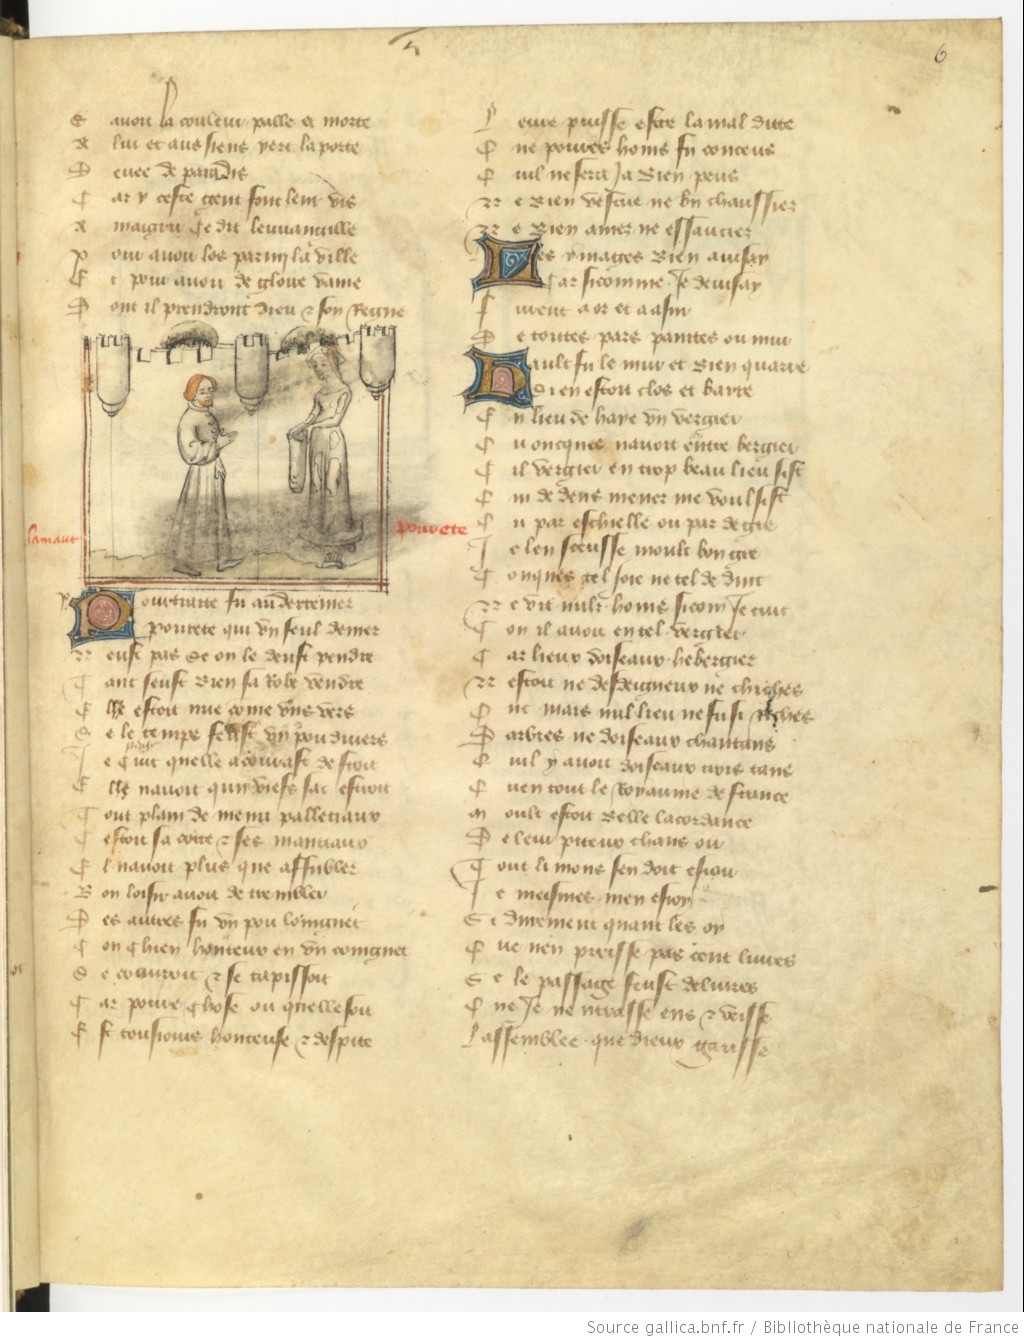 6
E avoir la couleur palle et morte
A lui et aus siens yert la porte
D evee de paradis
C ar y ceste gent font leur vis
A maigrir ce dit leuvangille
P our avoir los parmy la ville
E t pour avoir de gloire vaine
D ont il prendront dieu et son Regne
lamant
povrete
P ourtraite fu au derrenier
Povrete qui un seul denier
N eust pas se on le deust pendre
T ant seust bien sa Robe vendre
E lle estoit nue come uns vers
S e le temps feust un pou divers
J e cuit quelle acourast de froit
E lle navoit qun viels sac estroit
T out plain de menu palletiaux
C estoit sa cotte et ses mantiaux
E l navoit plus que affubler
B on loisir avoit de trembler
D es autres fu un pou loingnet
C on chien honteux en un coingnet
S e couvroit et se tapissoit
C ar povre chose ou quelle soit
E st tousiours honteuse et despite
L eure puisse estre la mal ditte
Q ne povres homs fu conceus
Q uil ne sera ja bien peus
N e bien vestue ne bn chaussier
N e bien amer ne essaucier
C es ymages bien avisay
Car sicomme Je devisay
F urent a or et a asur
D e toutes pars paintes ou mur
H ault fu le mur et bien quarre
Si en estoit clos et barre
E n lieu de haye un vergier
O u oncques navoit entre bergier
C il vergier en trop beau lieu sist
Q ui dedens mener me voulsist
O u par eschielle ou par degre
J e len sceusse moult bon gre
C onques tel joie ne tel deduit
N e vit nulz homs sicom Je cuit
C on il avoit en tel vergier
C ar lieux doiseaux hebergier
N estoit ne desdeigneux ne chiches
O nc mais nul lieu ne fu si riches
D arbres ne doiseaux chantans
Q uil y avoit doiseaux trois tans
Q uen tout le Royaume de france
M oult estoit belle lacordance
D e leur piteux chans oir
T out li mons sen doit esioir
J e meismes men esioy
S i durement quant les oy
Q ue nen preisse pas cent livres
S e le passage feust delivres
Q ne Je ne ntrasse ens et veisse
L assemblee que dieux garisse
Source gallica.bnf.fr / Bibliothèque nationale de France